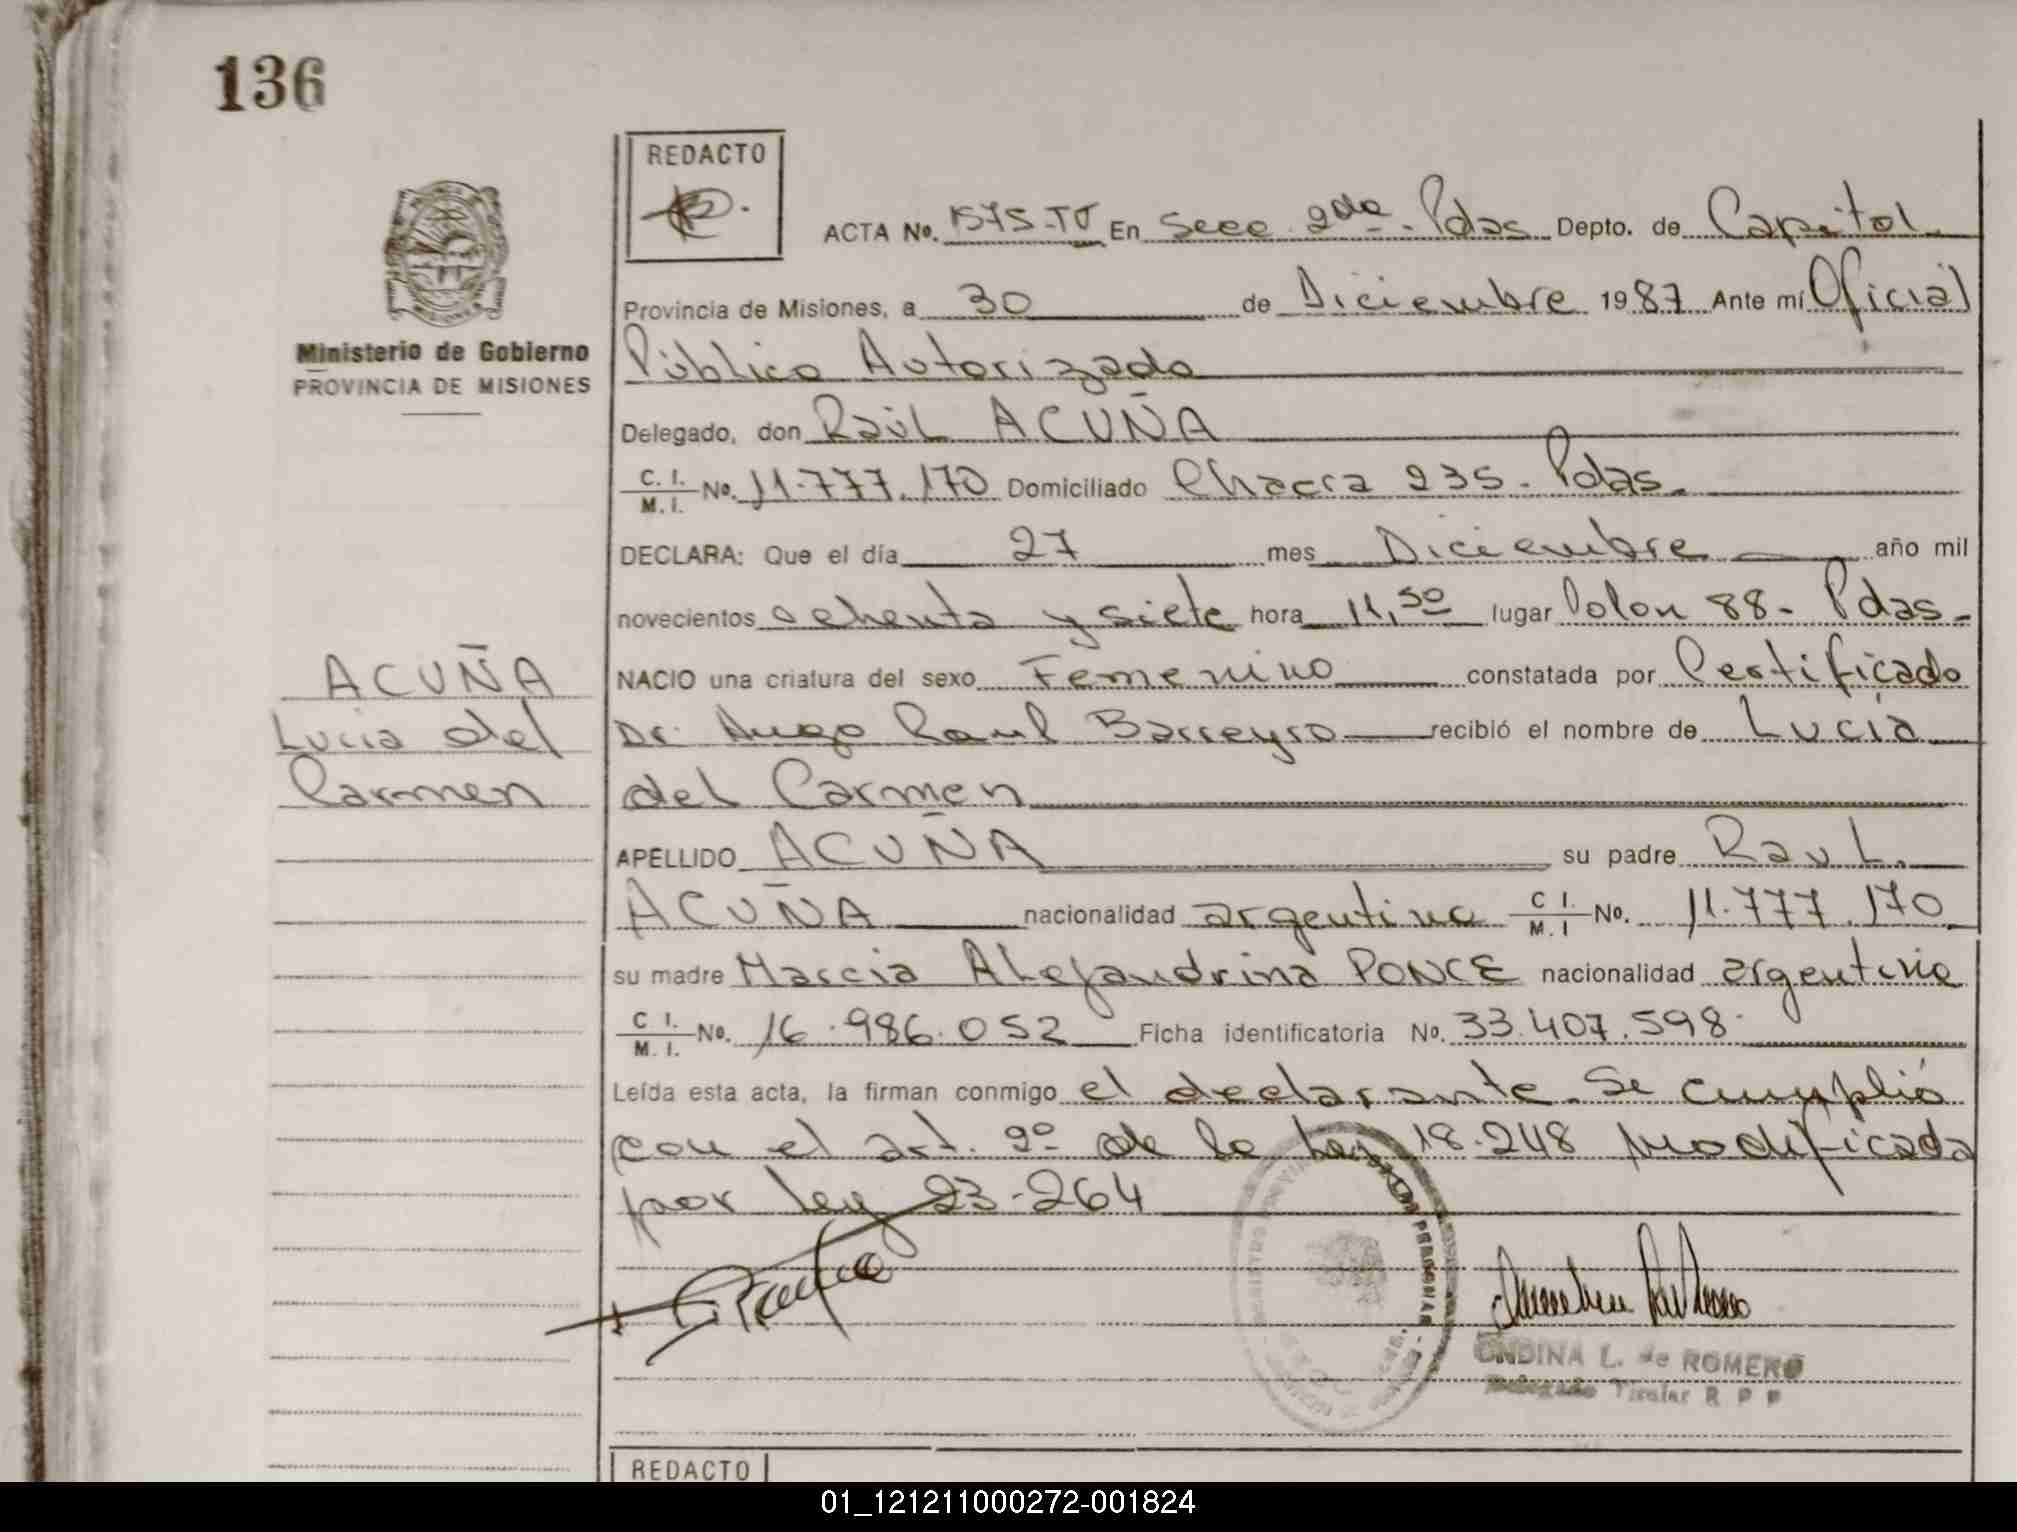 136
REDACTO
ACTA No. 1575-TV En Secc. 2da. Pdas Depto. de Capital.
Provincia de Misiones, a 30 de Diciembre 1987 Ante mí Oficial
Ministerio de Gobierno
PROVINCIA DE MISIONES
Público Autorizado
Delegado, don Raúl ACUÑA
C. I. M. I. No. 11.777.170 Domiciliado Chacra 235. Pdas.
DECLARA: Que el día 27 mes Diciembre año mil
novecientos ochenta y siete hora 11,50 lugar Colon 88- Pdas-
NACIO una criatura del sexo Femenino constatada por Certificado
Dr. Hugo Raul Barreyro recibió el nombre de Lucía
del Carmen
ACUÑA
Lucia del
Carmen
APELLIDO ACUÑA su padre Raul.
ACUÑA nacionalidad argentino C I. M. I No. 11.777.170
su madre Marcia Alejandrina PONCE nacionalidad argentina
C I. M. I. No. 16.986.052 Ficha identificatoria No. 33.407.598-
Leída esta acta, la firman conmigo el declarante. Se cumplió
con el art. 2º de la Ley 18.248 modificada
por ley 23-264
ONDINA L. de ROMERO
Delegado Titular R P P
REDACTO
01_121211000272-001824